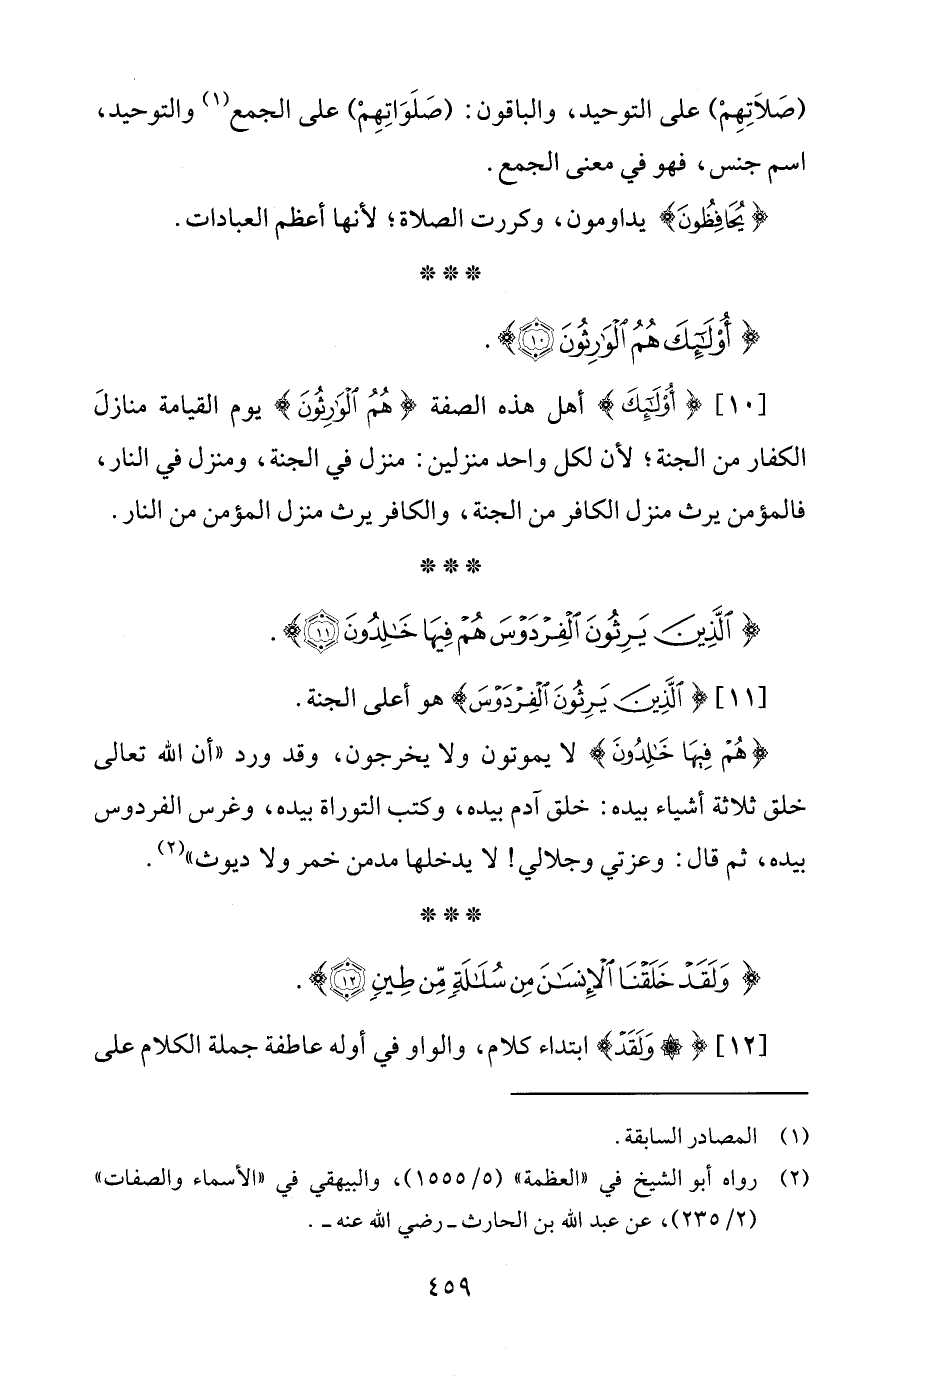 (صَلاَتِهِمْ) على التوحيد، والباقون: (صَلَوَاتِهِمْ) على الجمع(١) والتوحيد،
اسم جنس، فهو في معنى الجمع.
﴿يُحَافِظُونَ﴾ يداومون، وكررت الصلاة؛ لأنها أعظم العبادات.
***
﴿أُوْلَٰٓئِكَ هُمُ ٱلْوَٰرِثُونَ ١٠﴾.
[١٠] ﴿أُوْلَٰٓئِكَ﴾ أهل هذه الصفة ﴿هُمُ ٱلْوَٰرِثُونَ﴾ يوم القيامة منازلَ
الكفار من الجنة؛ لأن لكل واحد منزلين: منزل في الجنة، ومنزل في النار،
فالمؤمن يرث منزل الكافر من الجنة، والكافر يرث منزل المؤمن من النار.
***
﴿ٱلَّذِينَ يَرِثُونَ ٱلْفِرْدَوْسَ هُمْ فِيهَا خَٰلِدُونَ ١١﴾.
[١١] ﴿ٱلَّذِينَ يَرِثُونَ ٱلْفِرْدَوْسَ﴾ هو أعلى الجنة.
﴿هُمْ فِيهَا خَٰلِدُونَ﴾ لا يموتون ولا يخرجون، وقد ورد «أن الله تعالى
خلق ثلاثة أشياء بيده: خلق آدم بيده، وكتب التوراة بيده، وغرس الفردوس
بيده، ثم قال: وعزتي وجلالي! لا يدخلها مدمن خمر ولا ديوث»(٢).
***
﴿وَلَقَدْ خَلَقْنَا ٱلْإِنسَٰنَ مِن سُلَٰلَةٍ مِّن طِينٍ ١٢﴾.
[١٢] ﴿۞ وَلَقَدْ﴾ ابتداء كلام، والواو في أوله عاطفة جملة الكلام على
(١) المصادر السابقة.
(٢) رواه أبو الشيخ في «العظمة» (٥/ ١٥٥٥)، والبيهقي في «الأسماء والصفات»
(٢/ ٢٣٥)، عن عبد الله بن الحارث ـ رضي الله عنه ـ.
٤٥٩